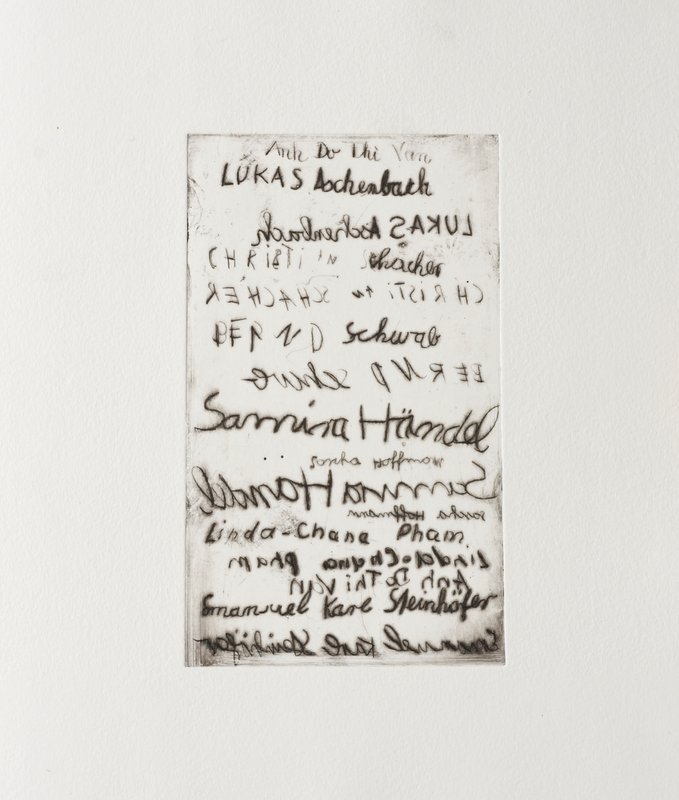 Anh Do thi Van
LUKAS Aschenbach
LUKAS Aschenbach
CHRISTIAN Schacher
CHRISTIAN SCHACHER
Schwab
BERND
Samira Händel
Hoffmann
Samira Händel
Sascha Hoffmann
Linda-Chana Pham
Linda-Chana Pham
Anh Do Thi Van
Emanuel Karl Steinhöfer
Emanuel Karl Steinhöfer